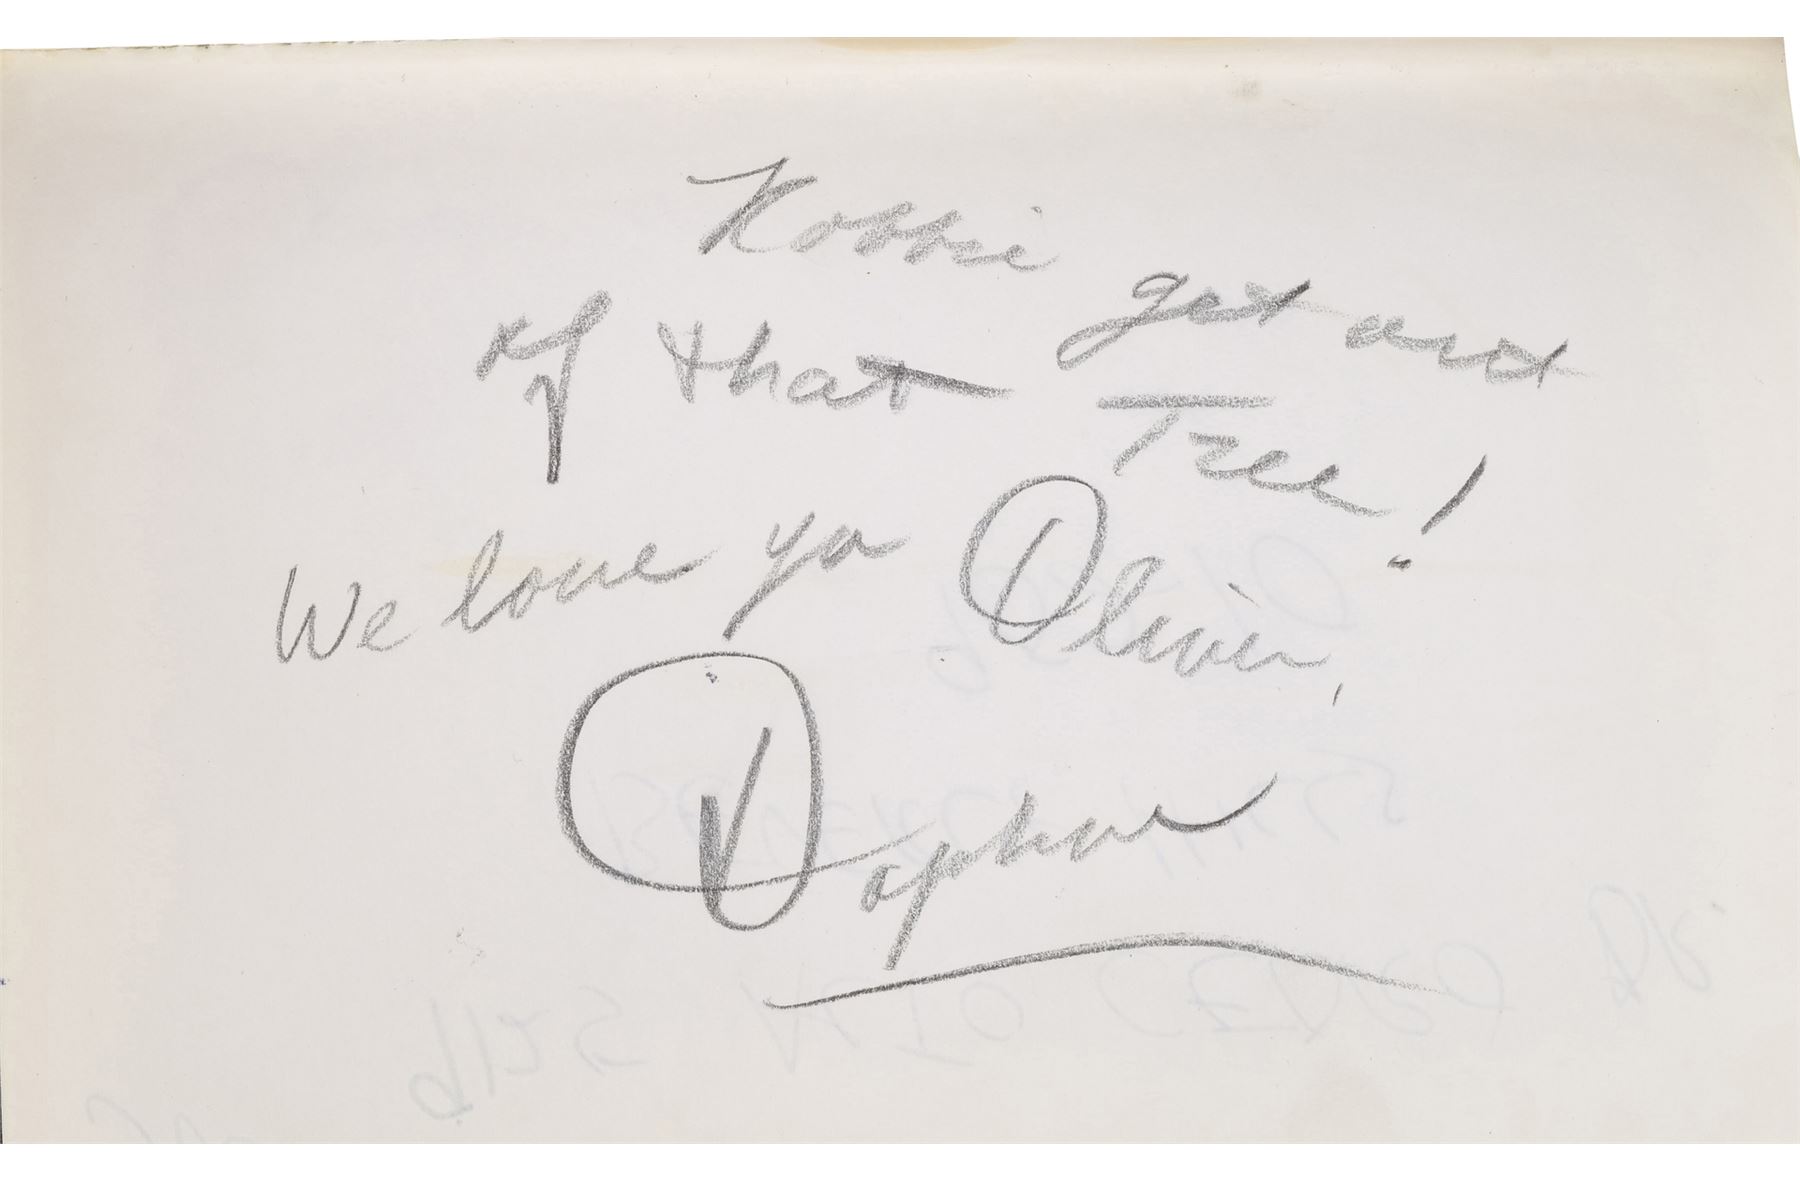 Robbie get out
of that Tree!
We love ya Oliver,
Daphne